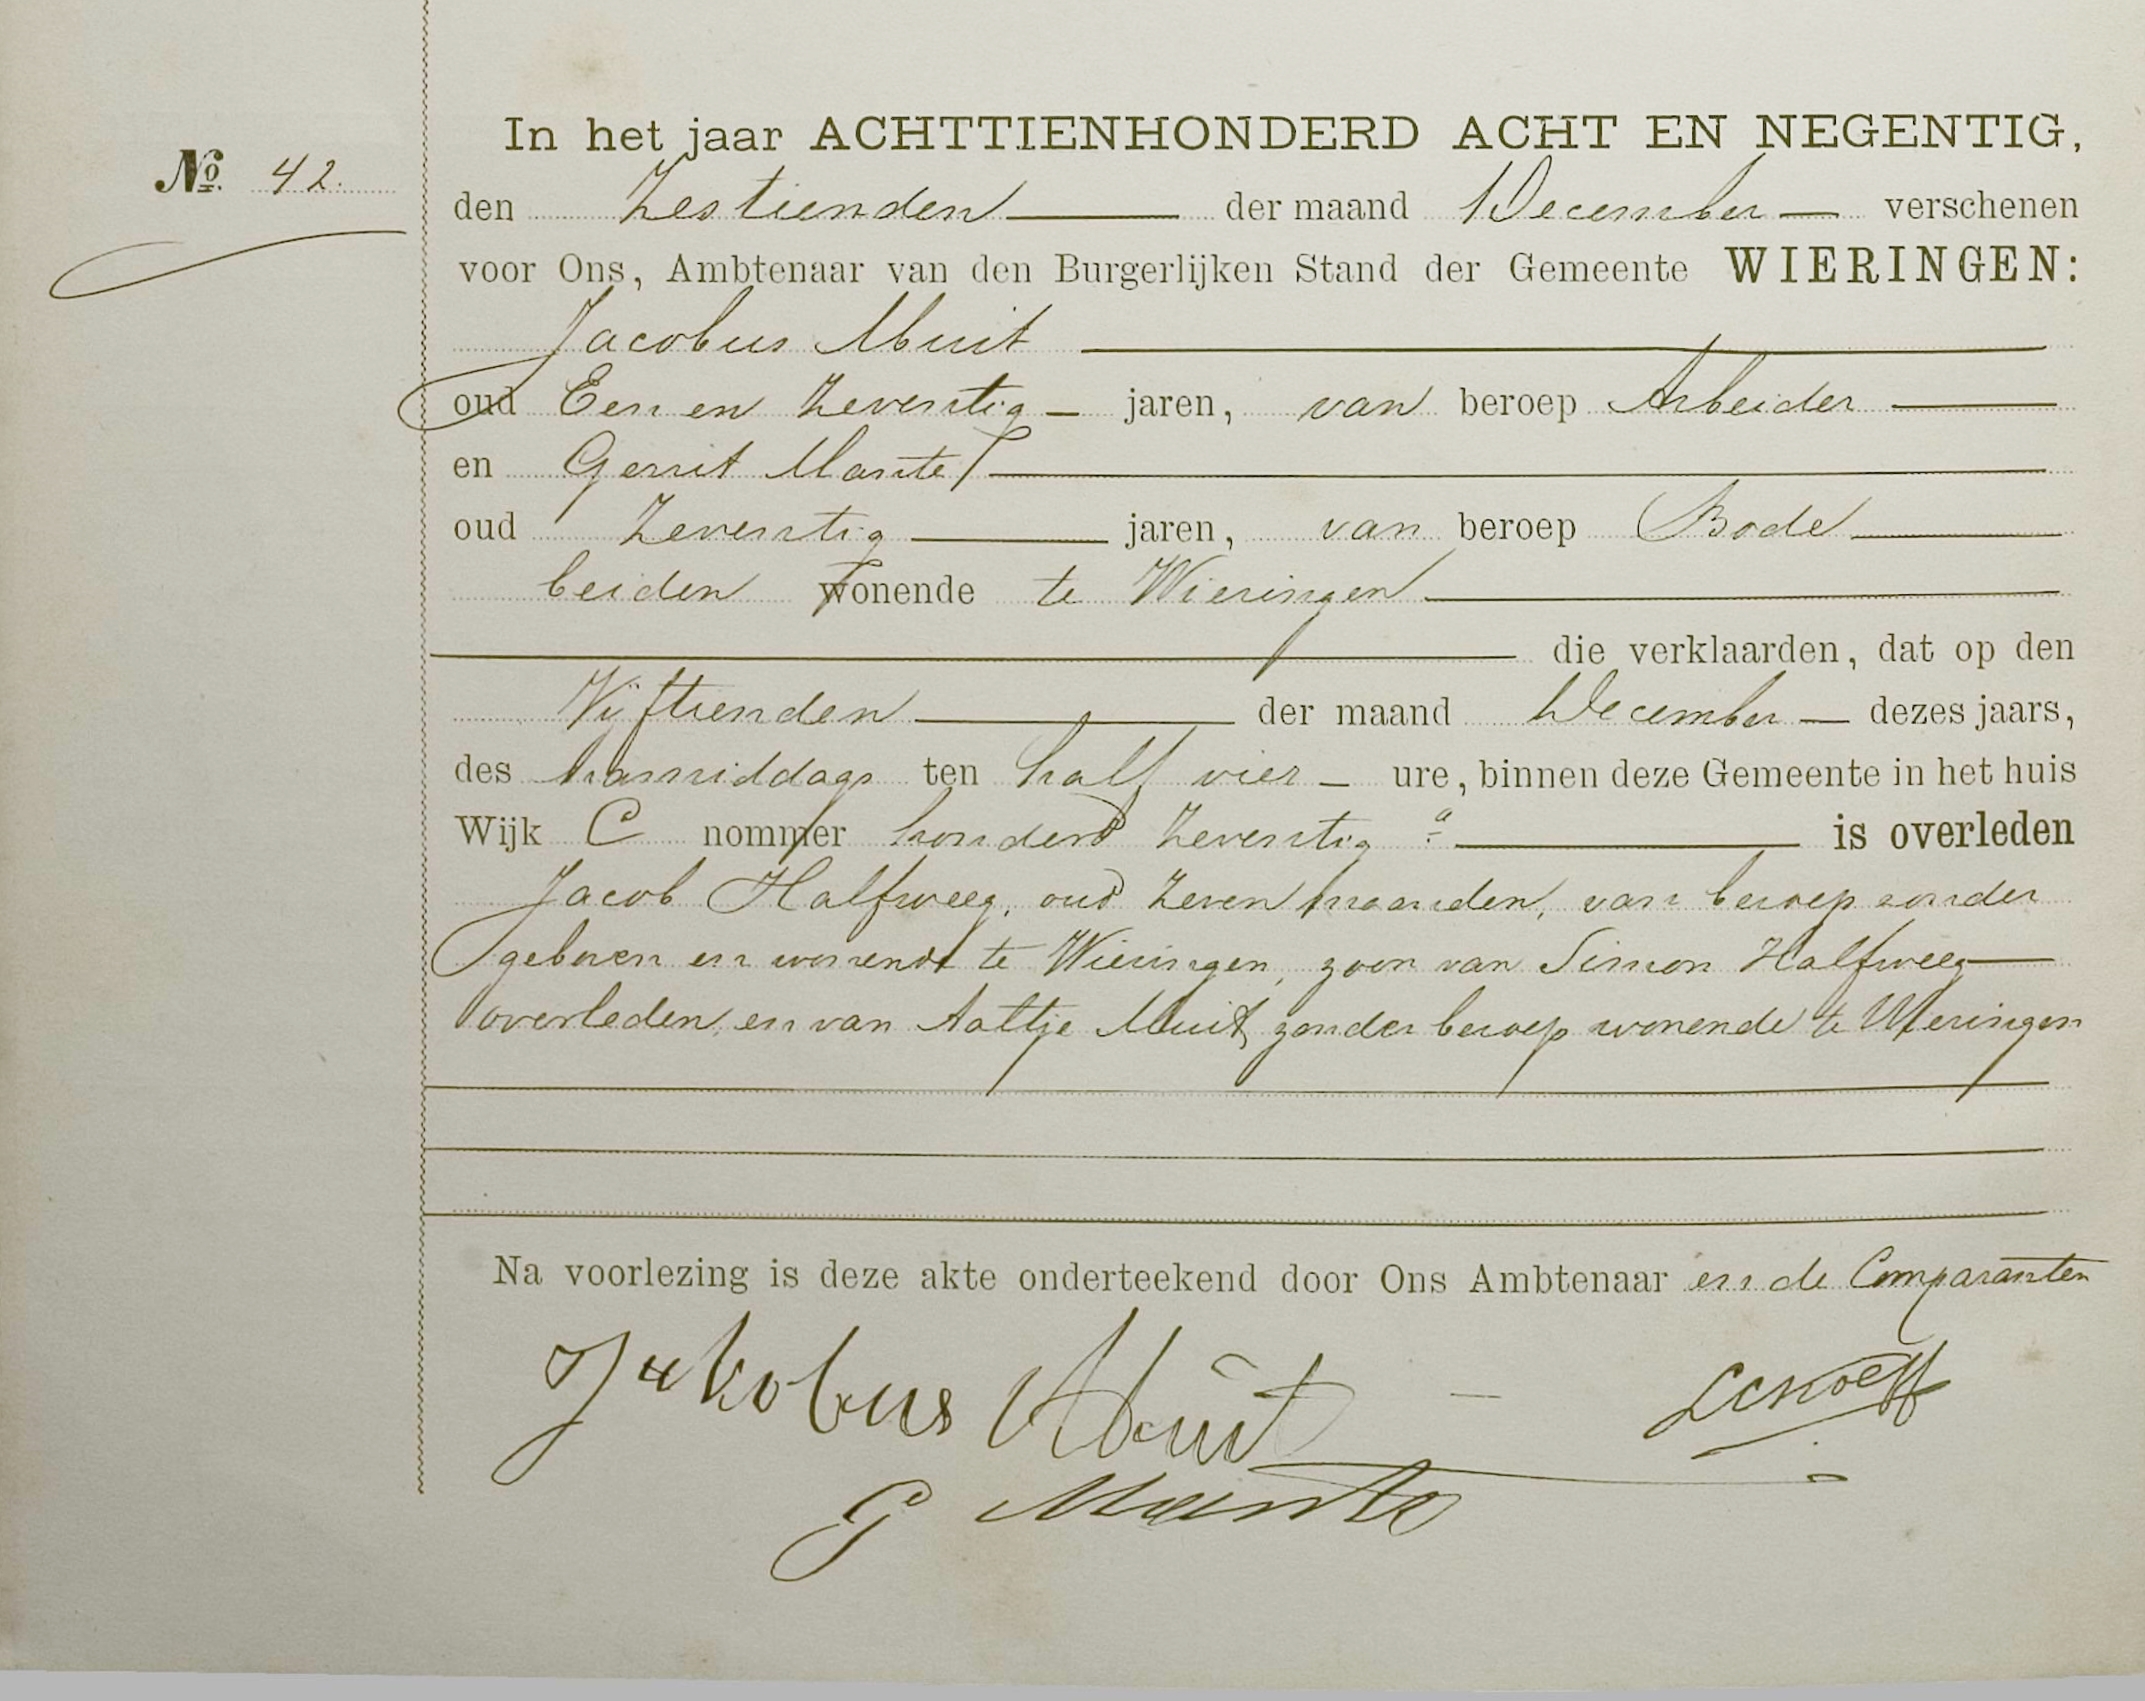 In het jaar ACHTTIENHONDERD ACHT EN NEGENTIG,
No. 42.
den Zestienden der maand December verschenen
voor Ons, Ambtenaar van den Burgerlijken Stand der Gemeente WIERINGEN:
Jacobus Muit
oud Een en Zeventig jaren, van beroep Arbeider
en Gerrit Mante
oud Zeventig jaren, van beroep Bode
beiden wonende te Wieringen
die verklaarden, dat op den
Vijftienden der maand December dezes jaars,
des namiddags ten half vier ure, binnen deze Gemeente in het huis
Wijk C nommer honderd Zeventig a is overleden
Jacob Halfweeg, oud Zeven maanden, van beroep zonder
geboren en wonende te Wieringen, zoon van Simon Halfweeg
overleden, en van Aaltje Muit, zonder beroep wonende te Wieringen
Na voorlezing is deze akte onderteekend door Ons Ambtenaar en de Comparanten
Jakobus Muit
G Mante